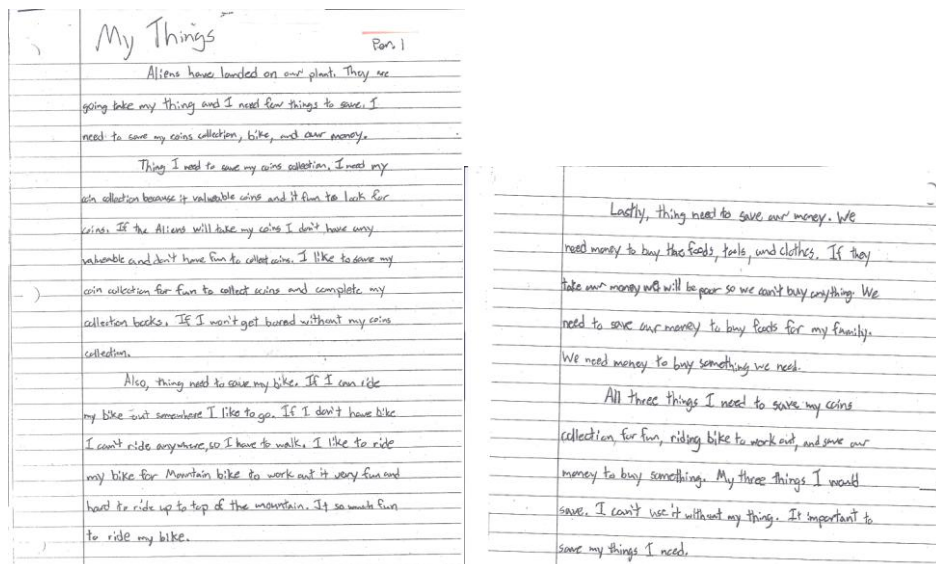 My Things
Per. 1
Aliens have landed on our plant. They are
going take my thing and I need few things to save. I
need to save my coins collection, bike, and our money.
Thing I need to save my coins collection. I need my
coin collection because it valueable coins and it fun to look for
coins. If the Aliens will take my coins I don't have any
valueable and don't have fun to collect coins. I like to save my
coin collection for fun to collect coins and complete my
collection books. If I won't get bored without my coins
collection.
Also, thing need to save my bike. If I can ride
my bike out somewhere I like to go. If I don't have bike
I can't ride anywhere, so I have to walk. I like to ride
my bike for Mountain bike to work out it very fun and
hard to ride up to top of the mountain. It so much fun
to ride my bike.
Lastly, thing need to save our money. We
need money to buy the foods, tools, and clothes. If they
take our money we will be poor so we can't buy anything. We
need to save our money to buy foods for my family.
We need money to buy something we need.
All three things I need to save my coins
collection, for fun, riding bike to work out, and save our
money to buy something. My three things I would
save. I can't use it without my thing. It important to
save my things I need.